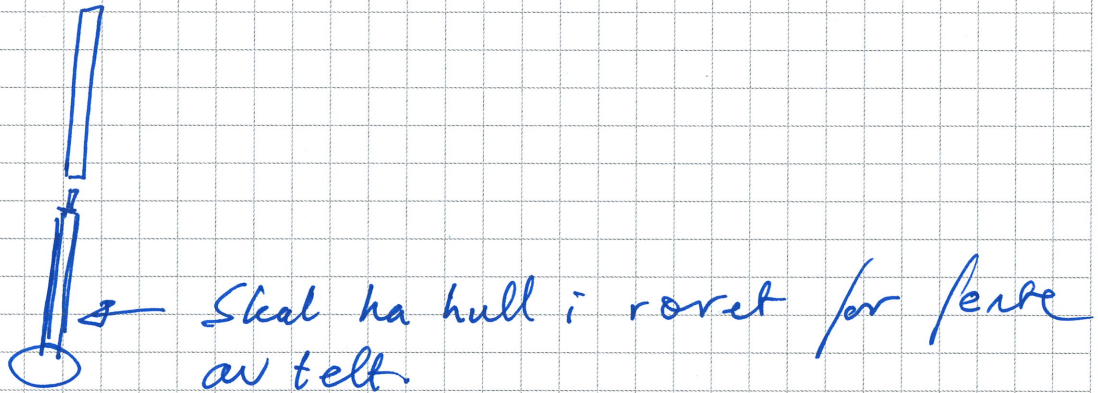 Skal ha hull i røret for feste
av telt.